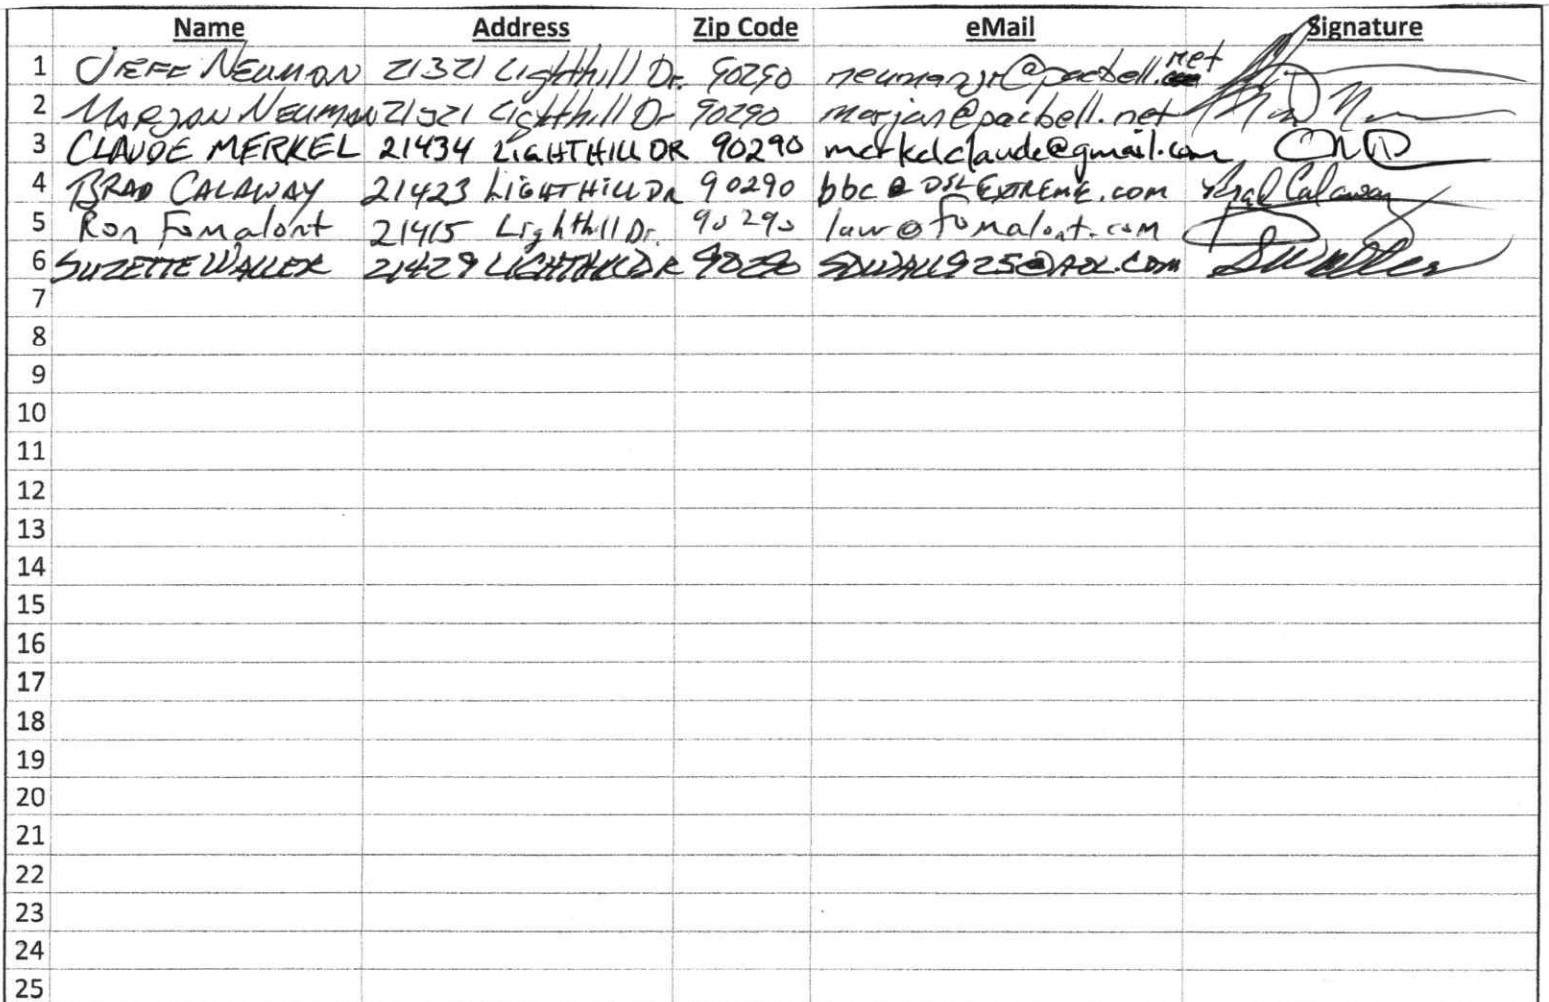 Name Address Zip Code eMail Signature
1 JEFF NEUMAN 21321 Lighthill Dr. 90290 neumanjr@pacbell.net
2 MARJAN NEUMAN 21321 Lighthill Dr 90290 marjan@pacbell.net
3 CLAUDE MERKEL 21434 LIGHTHILL DR 90290 merkelclaude@gmail.com
4 BRAD CALAWAY 21423 LIGHTHILL DR 90290 bbc@DSLEXTREME.com Brad Calaway
5 Ron Fomalont 21415 Lighthill Dr. 90290 law@fomalont.com
6 SUZETTE WALLER 21429 LIGHTHILL DR 90290 SDWALL925@AOL.COM
7
8
9
10
11
12
13
14
15
16
17
18
19
20
21
22
23
24
25